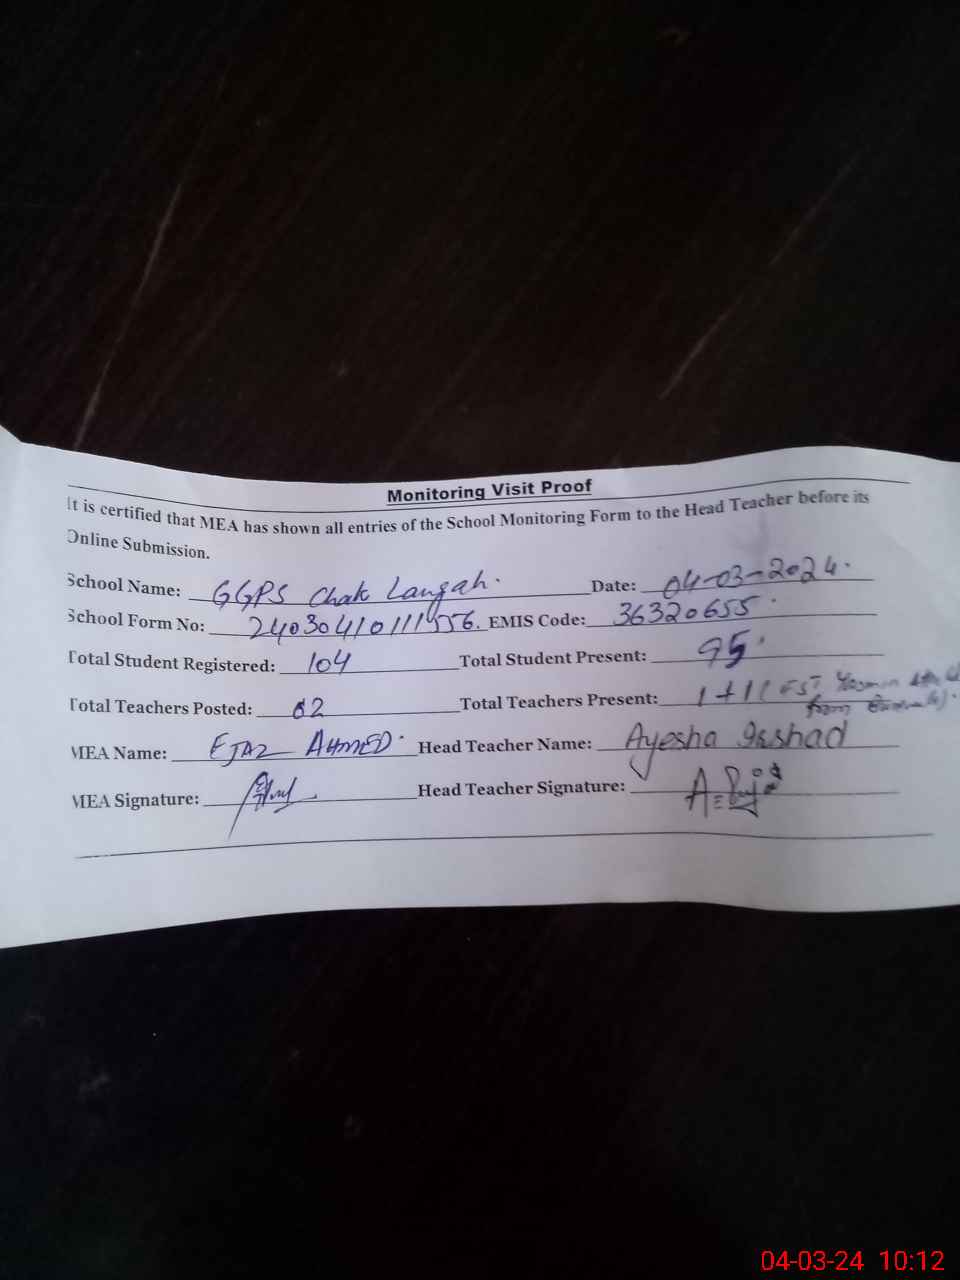 Monitoring Visit Proof
It is certified that MEA has shown all entries of the School Monitoring Form to the Head Teacher before its
Online Submission.
School Name: GGPS Chak Langah. Date: 04-03-2024.
School Form No: EMIS Code: 36320655.
Total Student Registered: 104 Total Student Present: 95.
Total Teachers Posted: 02 Total Teachers Present: 1+1( EST Yasmin
from
MEA Name: EJAZ AHMED. Head Teacher Name: Ayesha Irshad
MEA Signature: Head Teacher Signature:
04-03-24 10:12